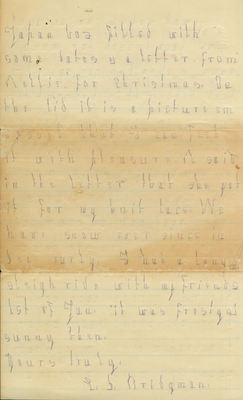 Japan box filled with
some dates & a letter from
Nellie for Christmas. On
the lid it is a picture
it with pleasure. I said
in the letter that she got
it for my knit lace. We
have snow ever since in
Dec. early. I had a
sleigh ride with my friends
1st of Jan. it was
sunny then.
Yours truly.
L. J. Bridgman.